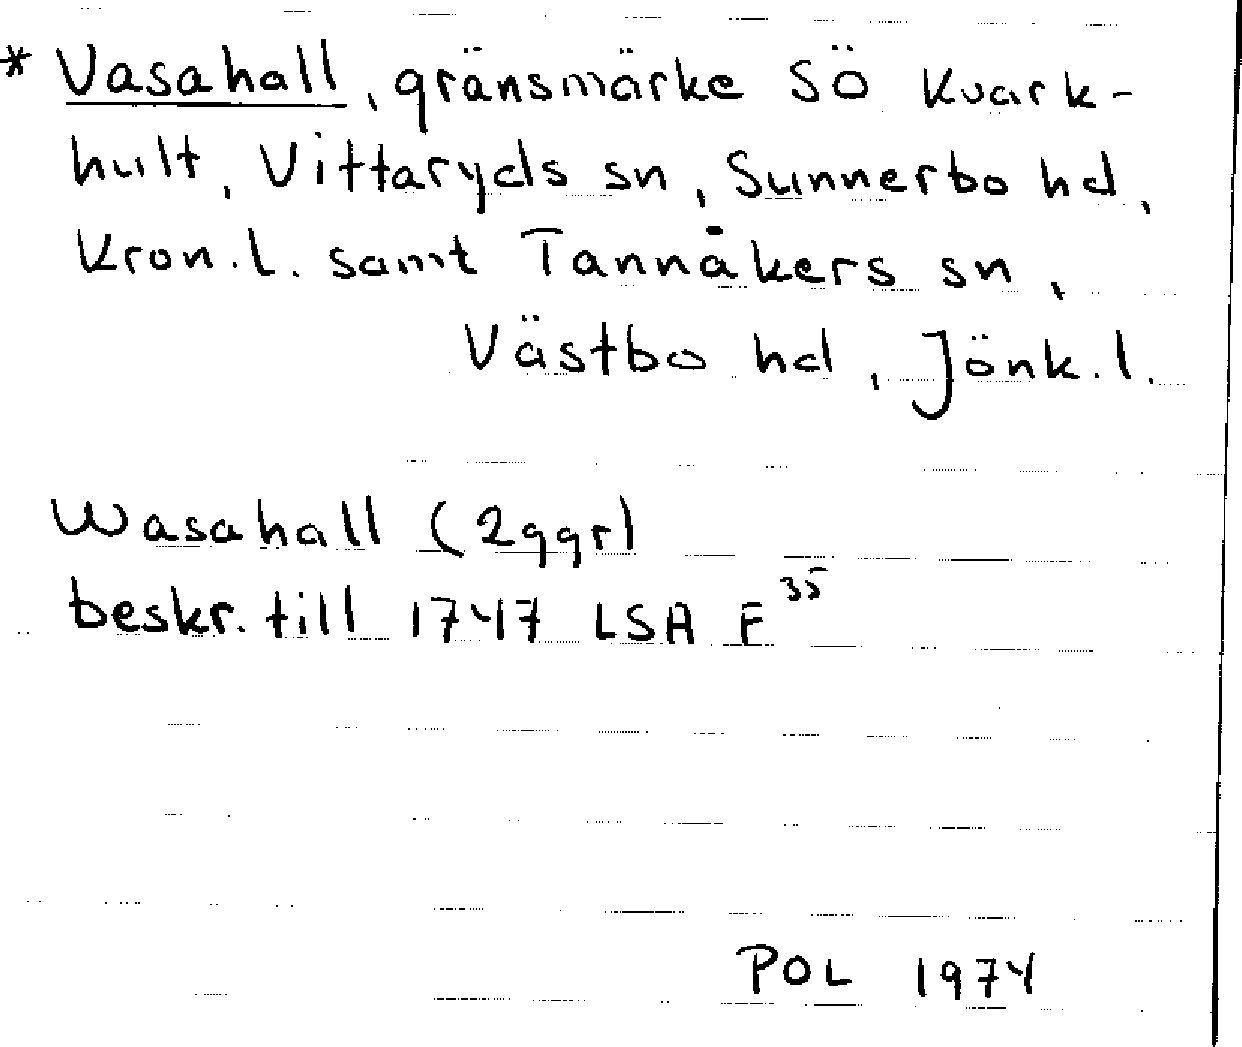 * Vasahall, gränsmärke SÖ Kvark-
hult, Vittaryds sn, Sunnerbo hd,
Kron.l. samt Tannåkers sn,
Västbo hd, Jönk.l.
Wasahall (2ggr)
beskr. till 1747 LSA F 35
POL 1974